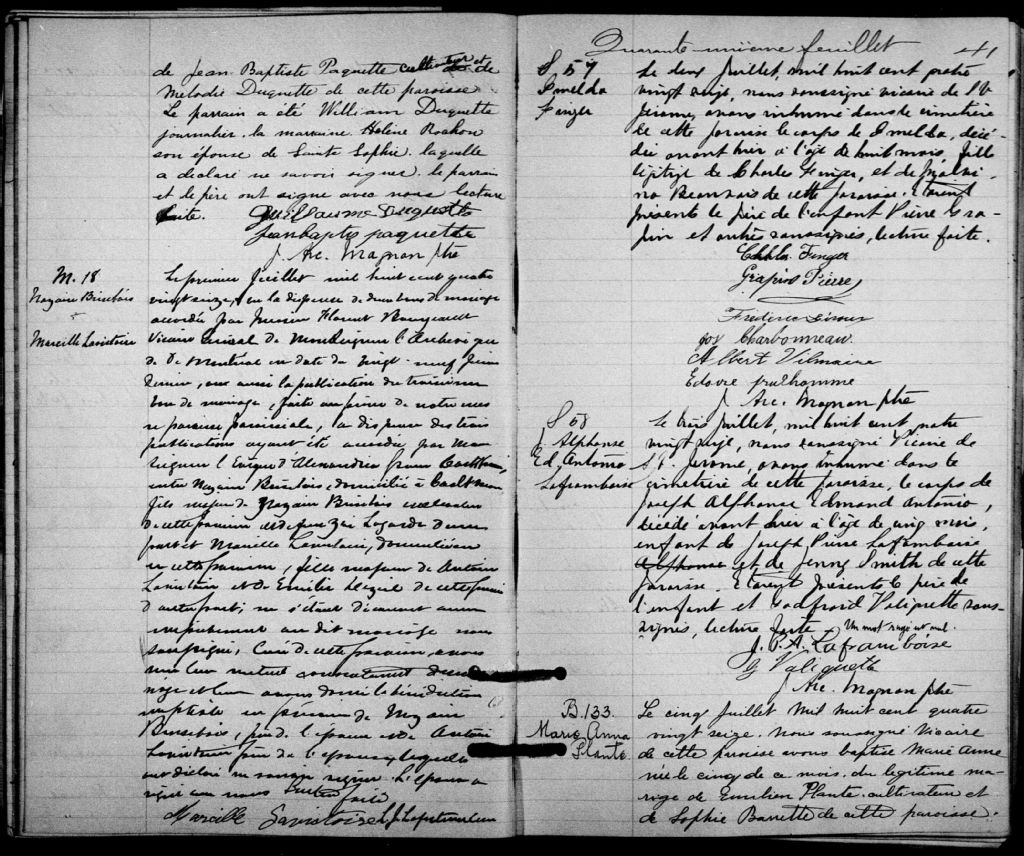 de Jean Baptiste Paquette et de
Mélodie Duquette de cette paroisse
Le parrain a été William Duquette
journalier. la marraine, Hélène Rochon
son épouse de Sainte Sophie. laquelle
a déclaré ne savoir signer. le parrain
et le père ont signé avec nous lecture
faite. Guillaume Duquette
Jean baptis paquette
J. Arc. Magnan ptre
M. 18
Nazaire Bisebois
&
Marcille Lavictoire
Le premier Juillet mil huit cent quatre
vingt seize, vu la dispense de deux bans de mariage
accordée par Florent Bourgeault
Vicaire Général de Monseigneur l'Archevêque
de Montréal en date du vingt-neuf Juin
dernier, vu aussi la publication du troisième
ban de mariage, faite au prône de notre messe
paroissiale, la dispense des trois
publications ayant été accordée par Mon
seigneur l'Evêque d'Alexandria
entre Nazaire Bisebois, domicilié à
fils majeur de Nazaire Bisebois
de cette paroisse et de Lagarde d'une
part et Marcille Lavictoire, domiciliée
en cette paroisse, fille majeure de Antoine
Lavictoire et de Emilie de cette paroisse
d'autre part; ne s'étant découvert aucun
empêchement au dit mariage nous
soussigné, Curé de cette paroisse, avons
reçu leur mutuel consentement de ma
riage et leur avons donné la bénédiction
nuptiale en présence de Nazaire
Bisebois, père de l'époux et de Antoine
Lavictoire père de l'épouse lesquels
ont déclaré ne savoir signer. L'épouse a
signé avec nous lecture faite
Marcille Lavictoire
Quarante-unième feuillet 41
S 57
Imelda
Finger
Le deux Juillet, mil huit cent quatre
vingt seize, nous soussigné vicaire de St
Jérôme, avons inhumé dans le cimetière
de cette paroisse le corps de Imelda, décé-
dée avant hier à l'âge de huit mois, fille
légitime de Charles Finger, et de Malvi-
na de cette paroisse. Etaient
présents le père de l'enfant Pierre Gra-
pin et autres soussignés, lecture faite.
Finger
Grapin Pierre
Frederic
Jos Charbonneau
Albert Vilmaire
Edovre prulhomme
J. Arc. Magnan ptre
S 58
J. Alphonse
Ed. Antonio
Laframboise
Le trois Juillet, mil huit cent quatre
vingt seize, nous soussigné Vicaire de
St. Jérôme, avons inhumé dans le
cimetière de cette paroisse, le corps de
Joseph Alphonse Edmond Antonio,
décédé avant hier à l'âge de cinq mois,
enfant de Joseph Pierre Laframboise
Alphonse et de Jenny Smith de cette
paroisse. Etaient présents le père de
l'enfant et Godfroid Valiquette sous-
signés, lecture faite Un mot rayé est nul.
J. P. A. Laframboise
G Valiquette
J. Arc. Magnan ptre
B. 133
Marie Anna
Plante
Le cinq Juillet Mil huit cent quatre
vingt seize. Nous soussigné Vicaire
de cette paroisse avons baptisé Marie Anna
née le cinq de ce mois, du légitime ma-
riage de Emilien Plante. cultivateur et
de Sophie Barrette de cette paroisse.